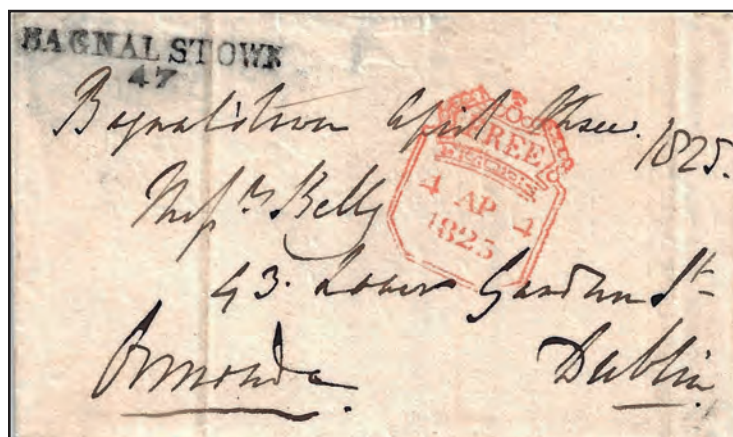 BAGNALSTOWN
47
Bagnalstown April Three. 1825.
FREE
4 AP 4
1825
Mess rs Bell
43. Lower Gardner St
Ormonde.
Dublin.